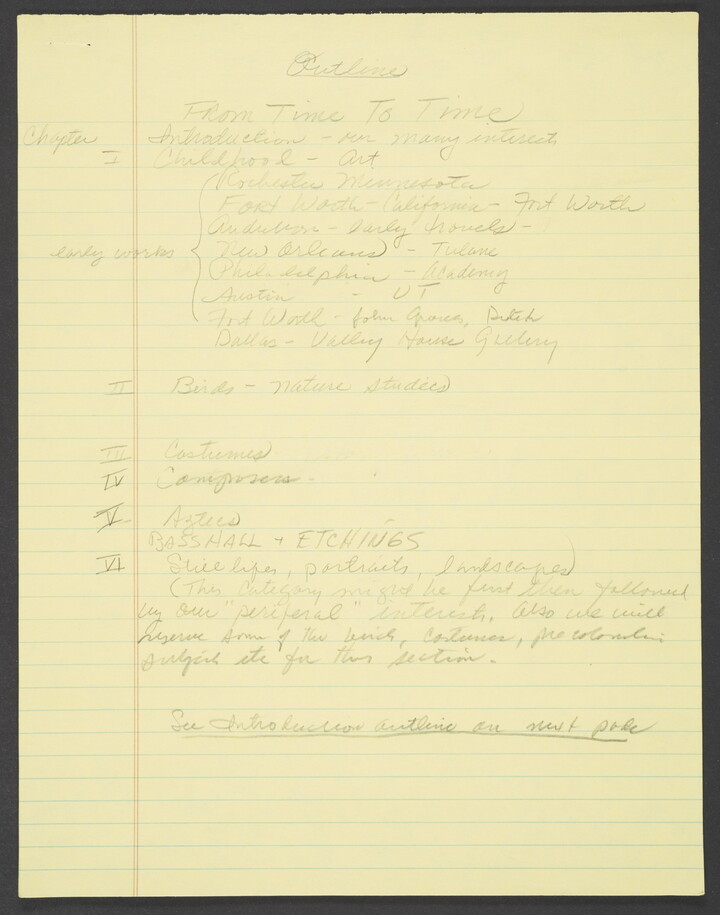 Outline
From Time To Time
Chapter Introduction - our many interests
I Childhood - Art
Rochester Minnesota
Fort Worth - California - Fort Worth
Audubon - early travels -
early works New Orleans - Tulane
Philadelphia - Academy
Austin - UT
Fort Worth - John Graves,
Dallas - Valley House Gallery
II Birds - nature studies
III Costumes
IV Composers -
V Aztecs
BASS HALL + ETCHINGS
VI Still lifes, portraits, landscapes
(This category might be first then followed
by our "periferal" interests. Also we will
reserve some of the birds, costumes, precolumbian
subjects etc for this section.
See Introduction outline on next page